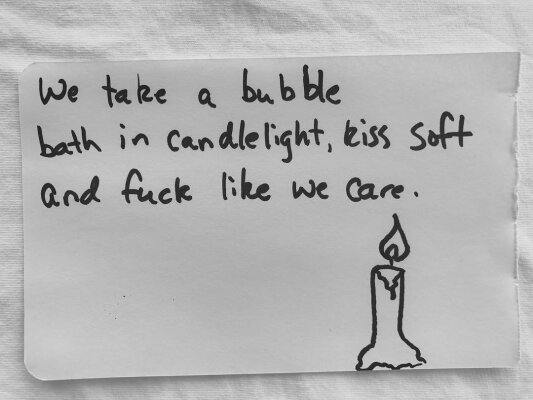 We take a bubble
bath in candlelight, kiss soft
and fuck like we care.